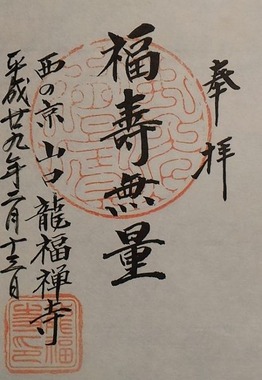 奉拝
福寿無量
西の京 山口 龍福禅寺
平成廿九年二月十三日